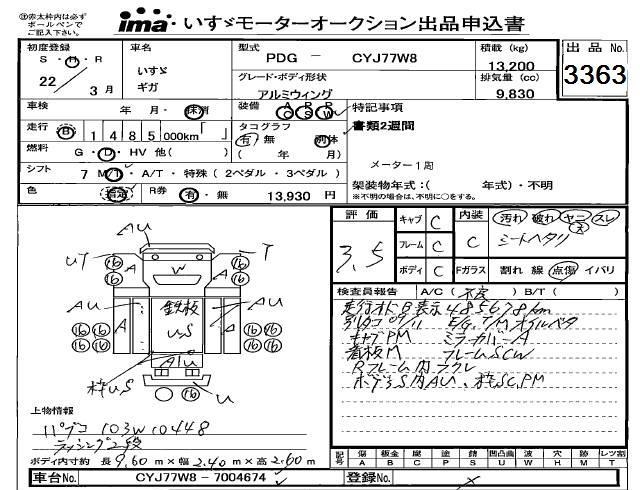 ㊟赤太枠内は必ず
ボールペンで
ご記入下さい。
ima いすゞモーターオークション出品申込書
初度登録 S・H・R 22年 3月
車名 いすゞ ギガ
型式 PDG － CYJ77W8
グレード・ボディ形状 アルミウィング
積載 (kg) 13,200
排気量 (cc) 9,830
出品No. 3363
車検 年 月・抹消
装備 AC PS PW
特記事項
書類2週間
走行 B 1485000km「 」
タコグラフ 有 無 別体 ( 年 月)
燃料 G・D・HV 他( )
メーター1周
シフト 7 MT・A/T・特殊 ( 2ペダル・3ペダル )
架装物年式：( 年式)・不明
※不明の場合は、不明に○をする。
色 R券 有・無 13,930 円
評価 3.5
キャブ C
フレーム C
ボディ C
内装 C 汚れ 破れ ヤニ スレ
シートヘタリ
Fガラス 割れ 線 点傷 イバリ
検査員報告 A/C ( ) B/T ( )
走行オドB表示 485678km
E/G, T/M オイルベタ
キャブPM ミラーカバーA
看板M フレームSCW
Rフレーム内
ボデーS内AU、枠SC,PM
AU
UT 16 16 A W A 16 16 T
AU 鉄板 AU
16 16 A U.S 16 16
16 16 16 16
AlU
枠U.S 16 U
上物情報
パブコ 103W10448
ラッシング2段
ボディ内寸約 長 9.60 m × 幅 2.40 m × 高 2.60 m
記号 傷 A 板金 B 腐 C 塗 P 錆 S 凹凸曲 U 波 W 穴 H 欠 M レツ割 T
車台No. CYJ77W8 - 7004674
登録No.